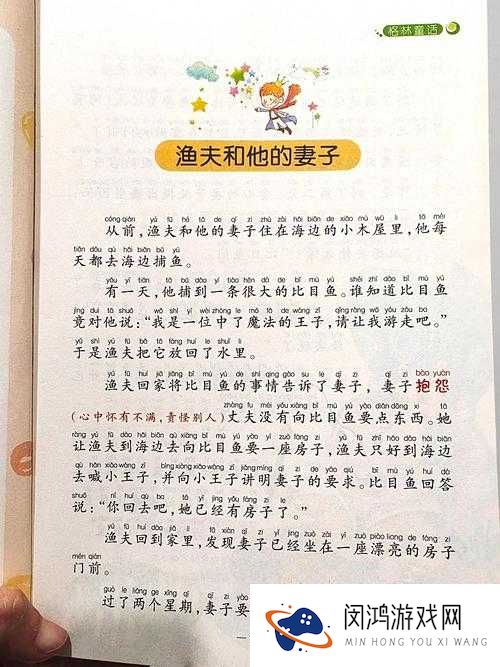 格林童话
渔夫和他的妻子
cóng qián yú fū hé tā de qī zi zhù zài hǎi biān de xiǎo mù wū lǐ tā měi
从前，渔夫和他的妻子住在海边的小木屋里，他每
tiān dōu qù hǎi biān bǔ yú
天都去海边捕鱼。
yǒu yì tiān tā bǔ dào yì tiáo hěn dà de bǐ mù yú shéi zhī dào bǐ mù yú
有一天，他捕到一条很大的比目鱼。谁知道比目鱼
jìng duì tā shuō wǒ shì yí wèi zhòng le mó fǎ de wáng zǐ qǐng ràng wǒ yóu zǒu ba
竟对他说：“我是一位中了魔法的王子，请让我游走吧。”
yú shì yú fū bǎ tā fàng huí le shuǐ lǐ
于是渔夫把它放回了水里。
yú fū huí jiā jiāng bǐ mù yú de shì qing gào su le qī zi qī zi bào yuàn
渔夫回家将比目鱼的事情告诉了妻子，妻子抱怨
zhàng fu méi yǒu xiàng bǐ mù yú yào diǎn dōng xi tā
（心中怀有不满，责怪别人）丈夫没有向比目鱼要点东西。她
ràng yú fū dào hǎi biān qù xiàng bǐ mù yú yào yí zuò fáng zi yú fū zhǐ hǎo dào hǎi biān
让渔夫到海边去向比目鱼要一座房子，渔夫只好到海边
qù hǎn xiǎo wáng zǐ bìng xiàng xiǎo wáng zǐ jiǎng míng qī zi de yāo qiú bǐ mù yú huí dá
去喊小王子，并向小王子讲明妻子的要求。比目鱼回答
shuō nǐ huí qù ba tā yǐ jīng yǒu fáng zi le
说：“你回去吧，她已经有房子了。”
yú fū huí dào jiā lǐ fā xiàn qī zi yǐ jīng zuò zài yí zuò piào liang de fáng zi
渔夫回到家里，发现妻子已经坐在一座漂亮的房子
mén qián
门前。
guò le liǎng gè xīng qī qī zi yào
过了两个星期，妻子要
闵鸿游戏网
MIN HONG YOU XI WANG